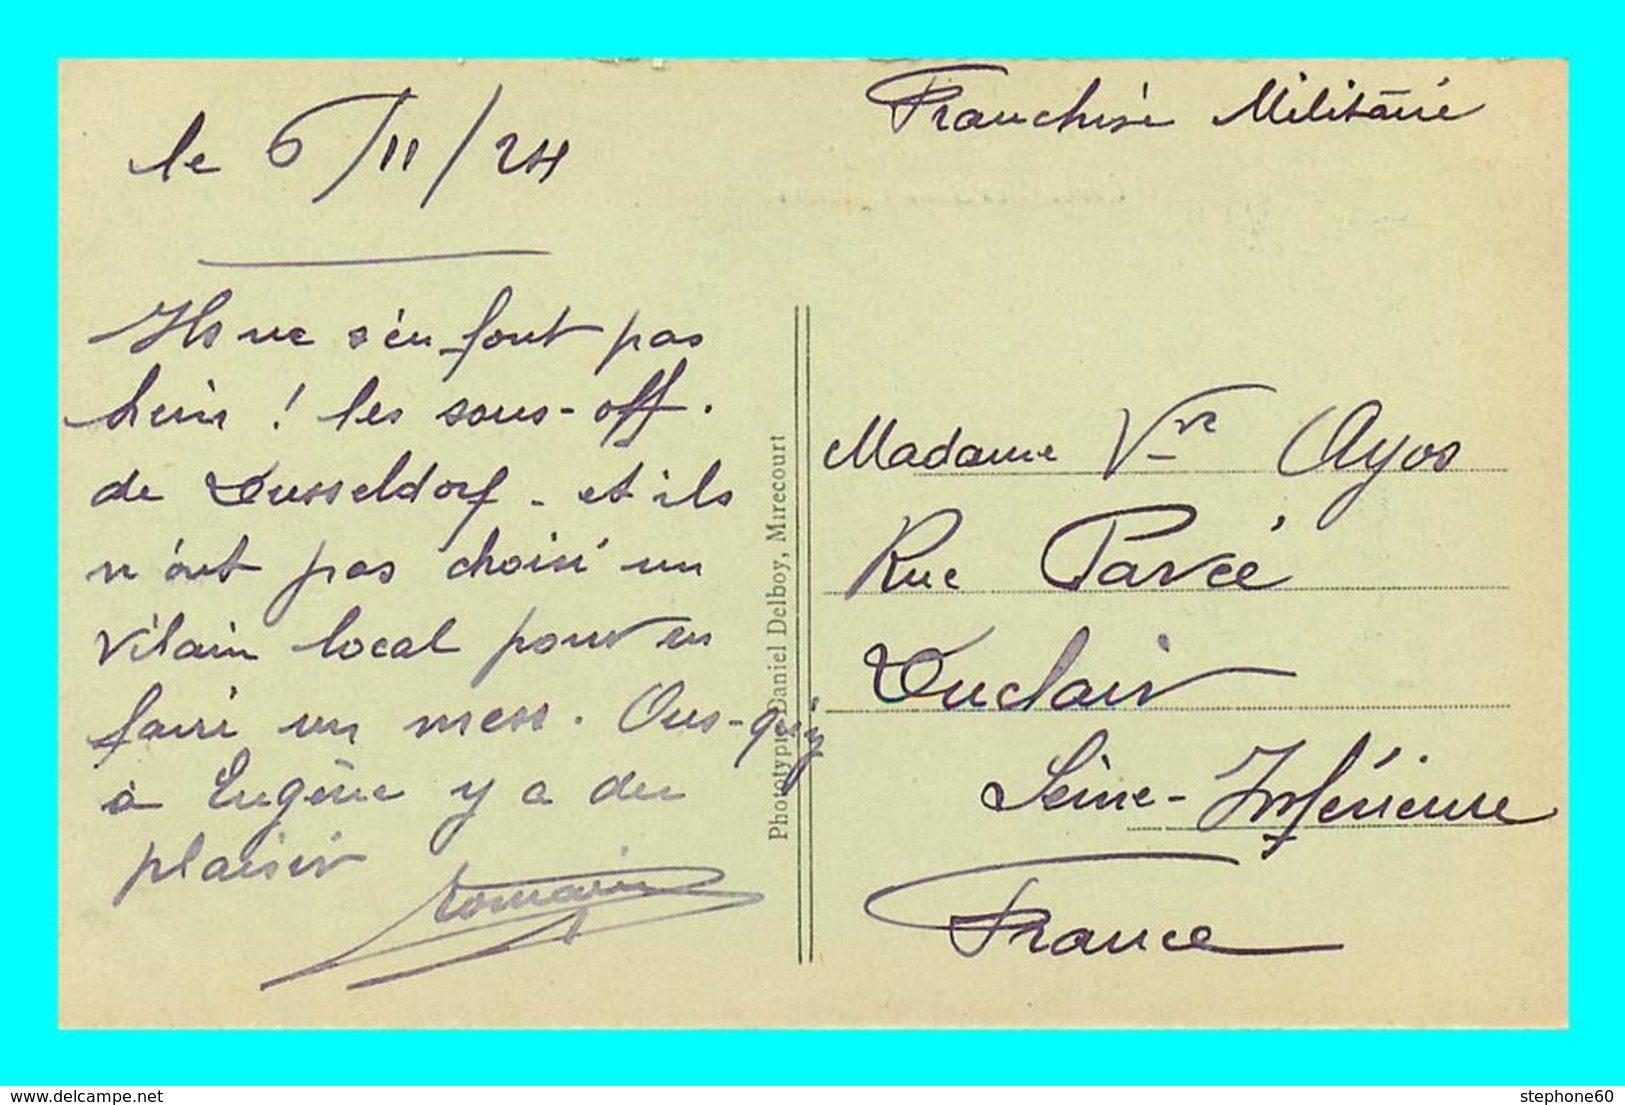 le 6/11/24
Ils ne s'en font pas
hein ! les sous-off.
de Dusseldorf - et ils
n'ont pas choisi un
vilain local pour en
faire un mess. Ous-qu'y
à Eugène y a du
plaisir
Romain
Phototypie Daniel Delboy, Mirecourt
Franchise Militaire
Madame Vve Ayos
Rue Pavée
Duclair
Seine-Inférieure
France
www.delcampe.net
stephone60